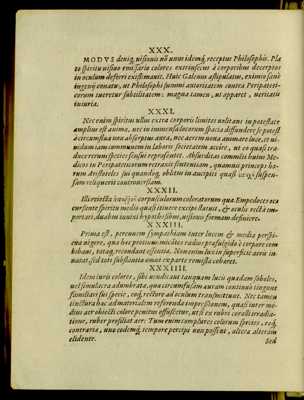 XXX.
MODVS deniq; uisionis nō unus idemq́; receptus Philosophis. Pla
to spiritu uisiuo emissario colores extrinsecus à corporibus decerptos
in oculum deferri existimauit. Huic Galenus astipulatus, eximio sanè
ingenij conatu, ut Philosophi summi autoritatem contra Peripateti-
corum tueretur subtilitatem: magna tamen, ut apparet, ueritatis
iniuria.
XXXI.
Nec enim spiritus ullus extra corporis limites uolitans in potestate
amplius est anima, nec in immensa locorum spacia diffundere se potest
à circumflua uoci absorptus aura, nec aerem unum animare luce, et ui-
uidum iam communem in laboris societatem accire, ut eo quasi tra-
duce rerum species sensui repræsentet. Absurditas commilis huius Me-
dicos in Peripateticorum retraxit sententiam, quamuis principis ho-
rum Aristoteles sui quandoq́; oblitus in ancipiti quasi suspen-
sam reliquerit controuersiam.
XXXII.
Illi reiecta corpusculorum coloratorum qua Empedocles oc
cursante spiritu medio quasi itinere excipi statuit, & oculis recta im-
portari, duabus innixi hypothesibus, uisionis formam definiere.
XXXIII.
Prima est, perennem sympathiam inter lucem & media perspi-
cua uigere, qua hæc protinus mollibus radijs prafulgida è corpore com-
bibant, totaq́; recondant essentia. Non enim lux in superficie aeris in-
natat, sed tota substantia omni ex parte remista cohæret.
XXXIIII.
Idem iuris colores, sibi uendicant tanquam lucis quædam soboles,
uel simulacra adumbrata, qua circumfusam auram continuò tingunt
familiari sui specie, eaq́; rectore ad oculum transmittunt. Nec tamen
tinctura hac ad materialem referenda impressionem, quasi inter me-
dius aer obiecti colore penitus offuscetur, ut fit ex rubro coralli tradia-
tione, ruber profiliat aer: Tum enim complures colorum species, eaq́;
contraria, uno eodemq́; tempore percipi non possint, altera alteram
elidente.
Sed